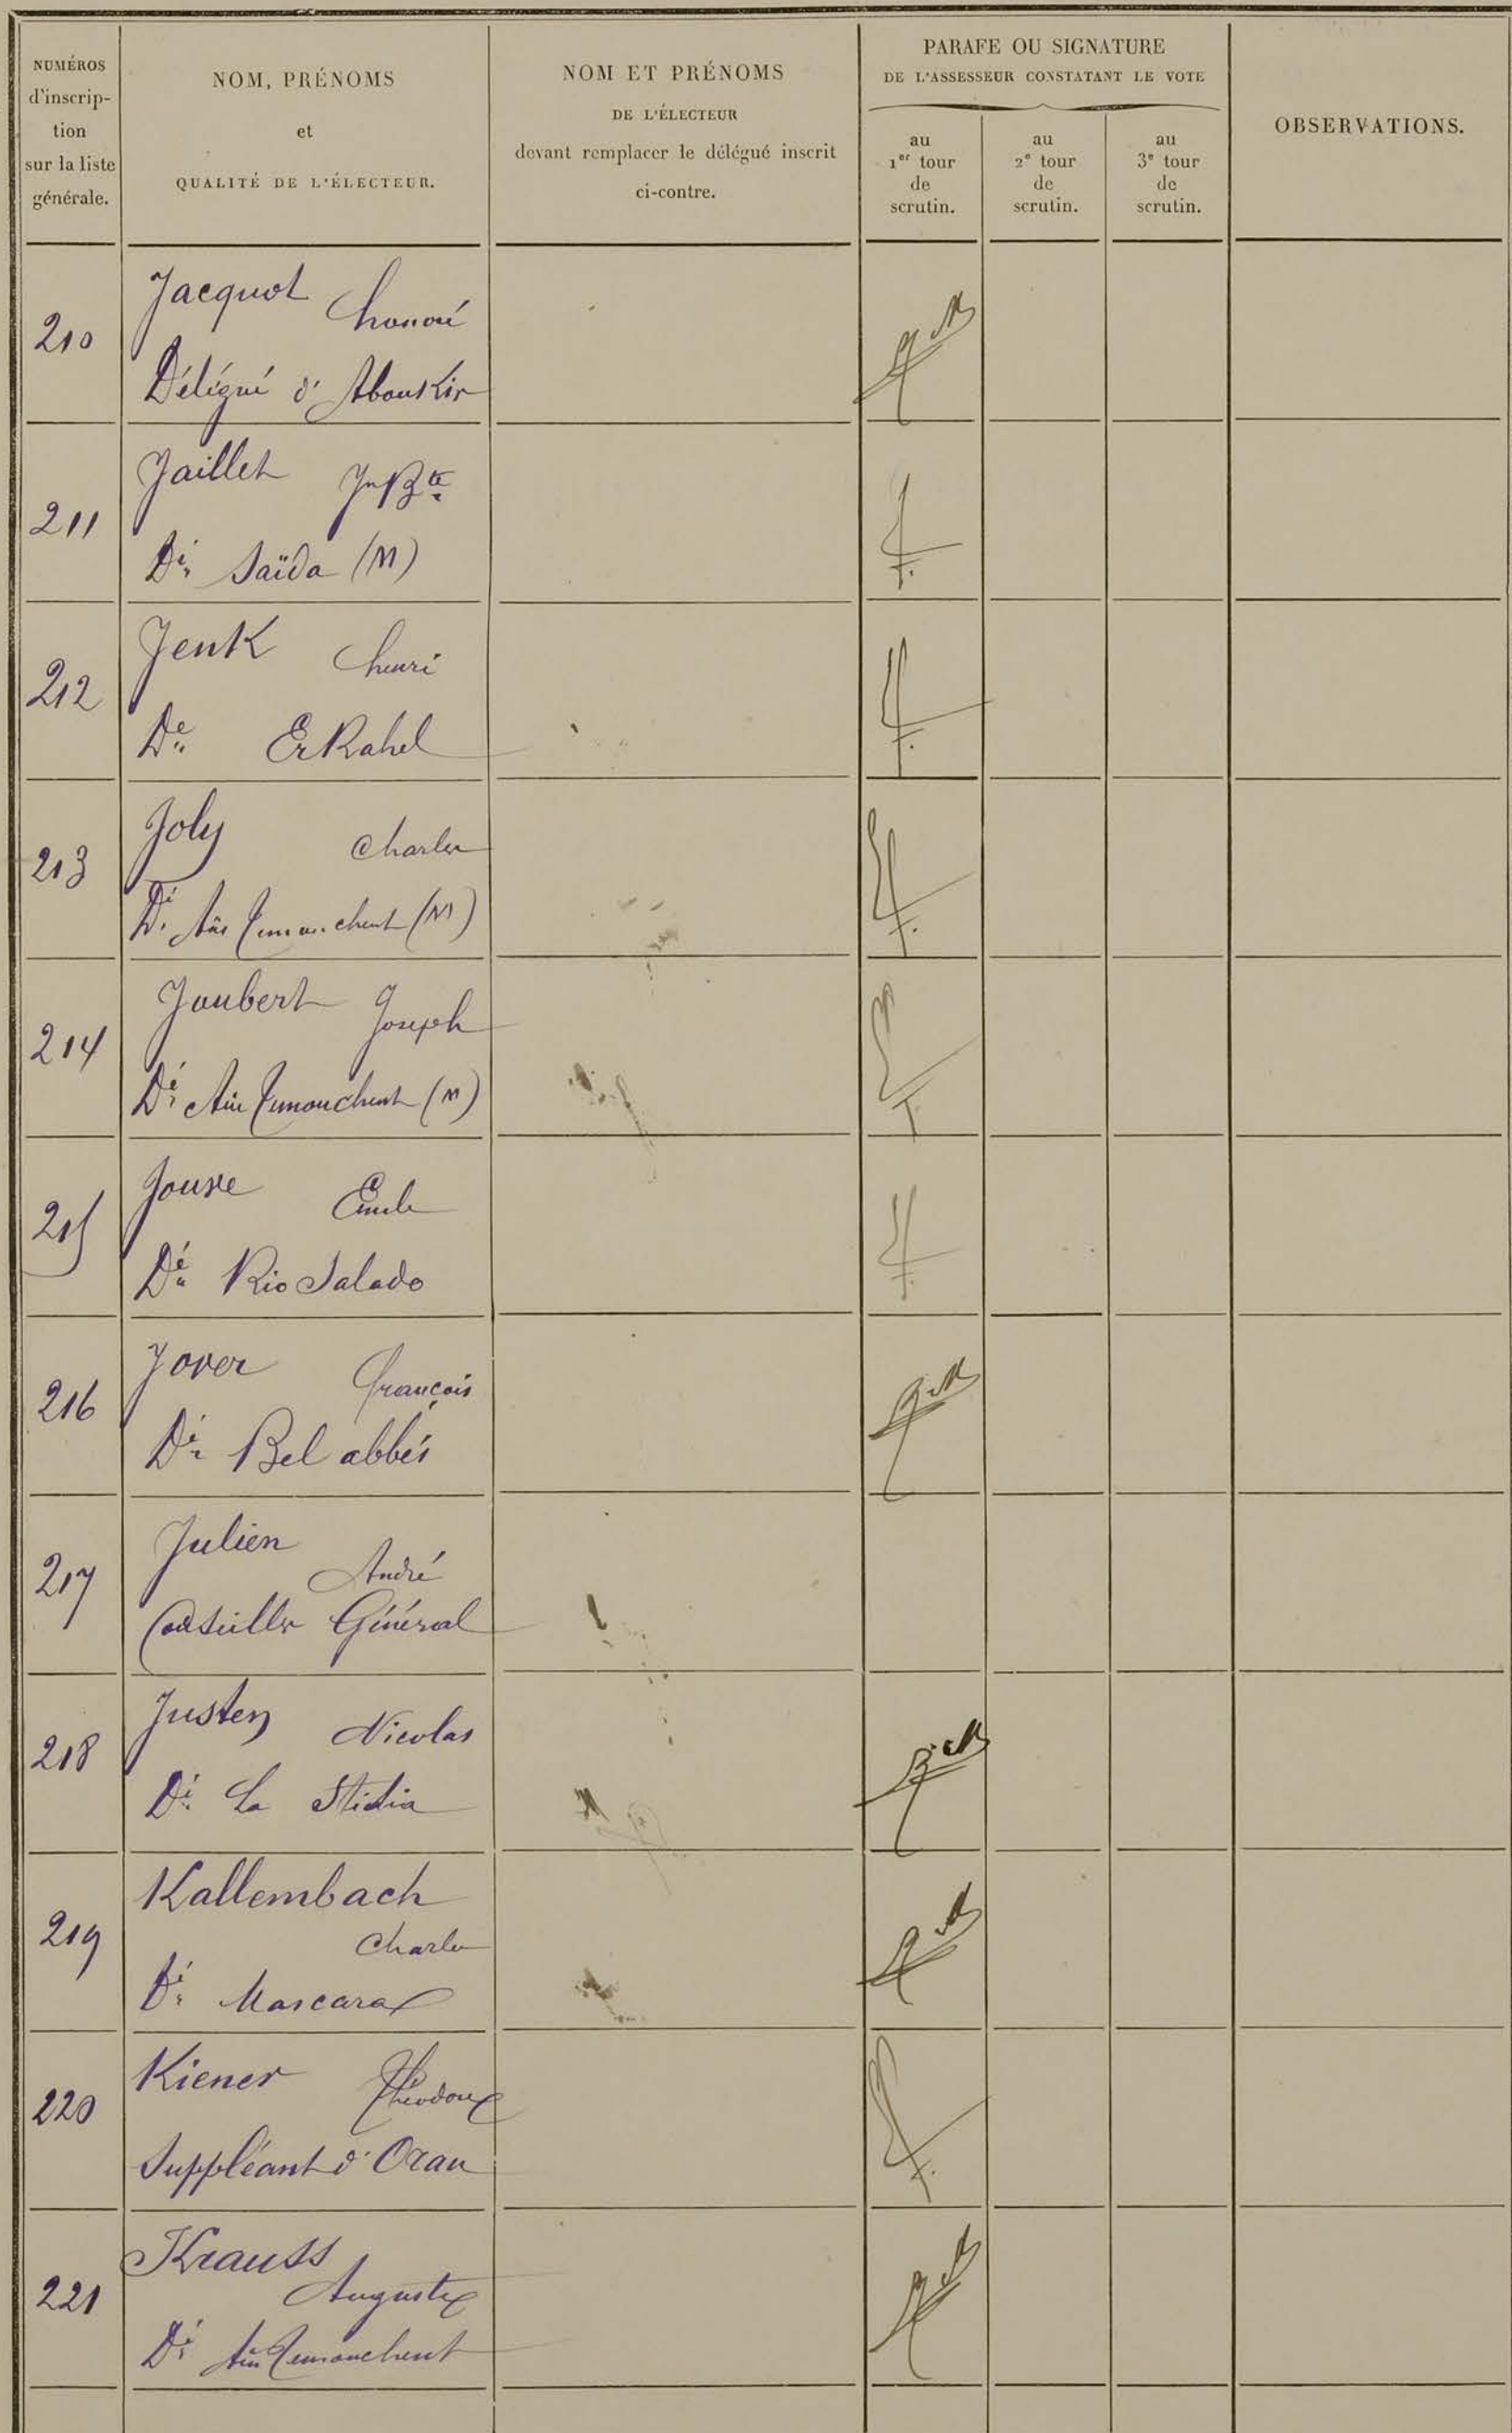 NUMÉROS
d'inscrip-
tion
sur la liste
générale.
NOM, PRÉNOMS
et
QUALITÉ DE L'ÉLECTEUR.
NOM ET PRÉNOMS
DE L'ÉLECTEUR
devant remplacer le délégué inscrit
ci-contre.
PARAFE OU SIGNATURE
DE L'ASSESSEUR CONSTATANT LE VOTE
au
1er tour
de
scrutin.
au
2e tour
de
scrutin.
au
3e tour
de
scrutin.
OBSERVATIONS.
210
Jacquot honoré
Délégué d'Aboukir
211
Jaillet Jn Bte
Dé Saïda (M)
212
Jenk henri
Dé Er Rahel
213
Joly Charles
Dé Aïn Temouchent (M)
214
Joubert Joseph
Dé Aïn Temouchent (M)
215
Jouve Emile
Dé Rio Salado
216
Jover François
Dé Bel abbés
217
Julien André
Conseiller Général
218
Justen Nicolas
Dé La Stidia
219
Kallembach
Charles
Dé Mascara
220
Kiener Théodore
Suppléant d'Oran
221
Krauss
Auguste
Dé Aïn Temouchent